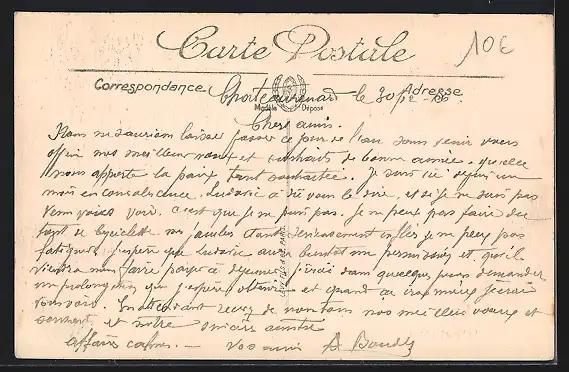 Carte Postale
10€
Correspondance Adresse
le 30/12
Modèle Déposé
Chers amis.
Nous ne saurions laisser passer ce jour de l'an sans venir vous
offrir nos meilleurs vœux et souhaits de bonne année, qu'elle
nous apporte la paix tant souhaitée. Je suis ici depuis un
mois en convalescence. Ludovic a dû vous le dire, et si je ne suis pas
venu vous voir, c'est que je ne puis pas. Je ne peux pas faire du
tout de bicyclette mes jambes étant sérieusement enflées je ne peux pas
fatiguer, j'espère que Ludovic aura bientôt une permission et qu'il
viendra nous faire payer à déjeuner, j'irai dans quelques jours demander
une prolongation que j'espère obtenir et quand ça ira mieux j'irai
vous voir. En attendant recevez de nous tous nos meilleurs vœux et
souhaits, et notre sincère amitié
affaires calmes. — Vos amis A